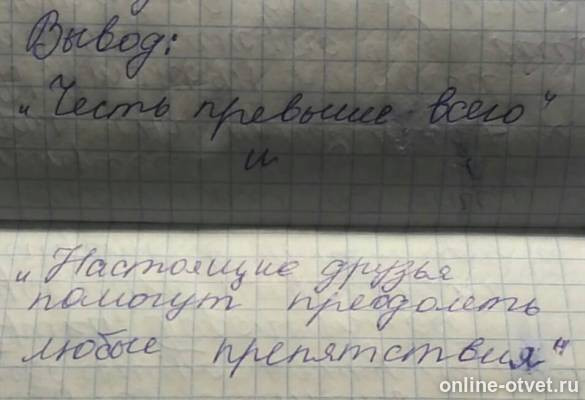 Вывод:
„Честь превыше всего"
и
„Настоящие друзья
помогут преодолеть
любые препятствия"
online-otvet.ru